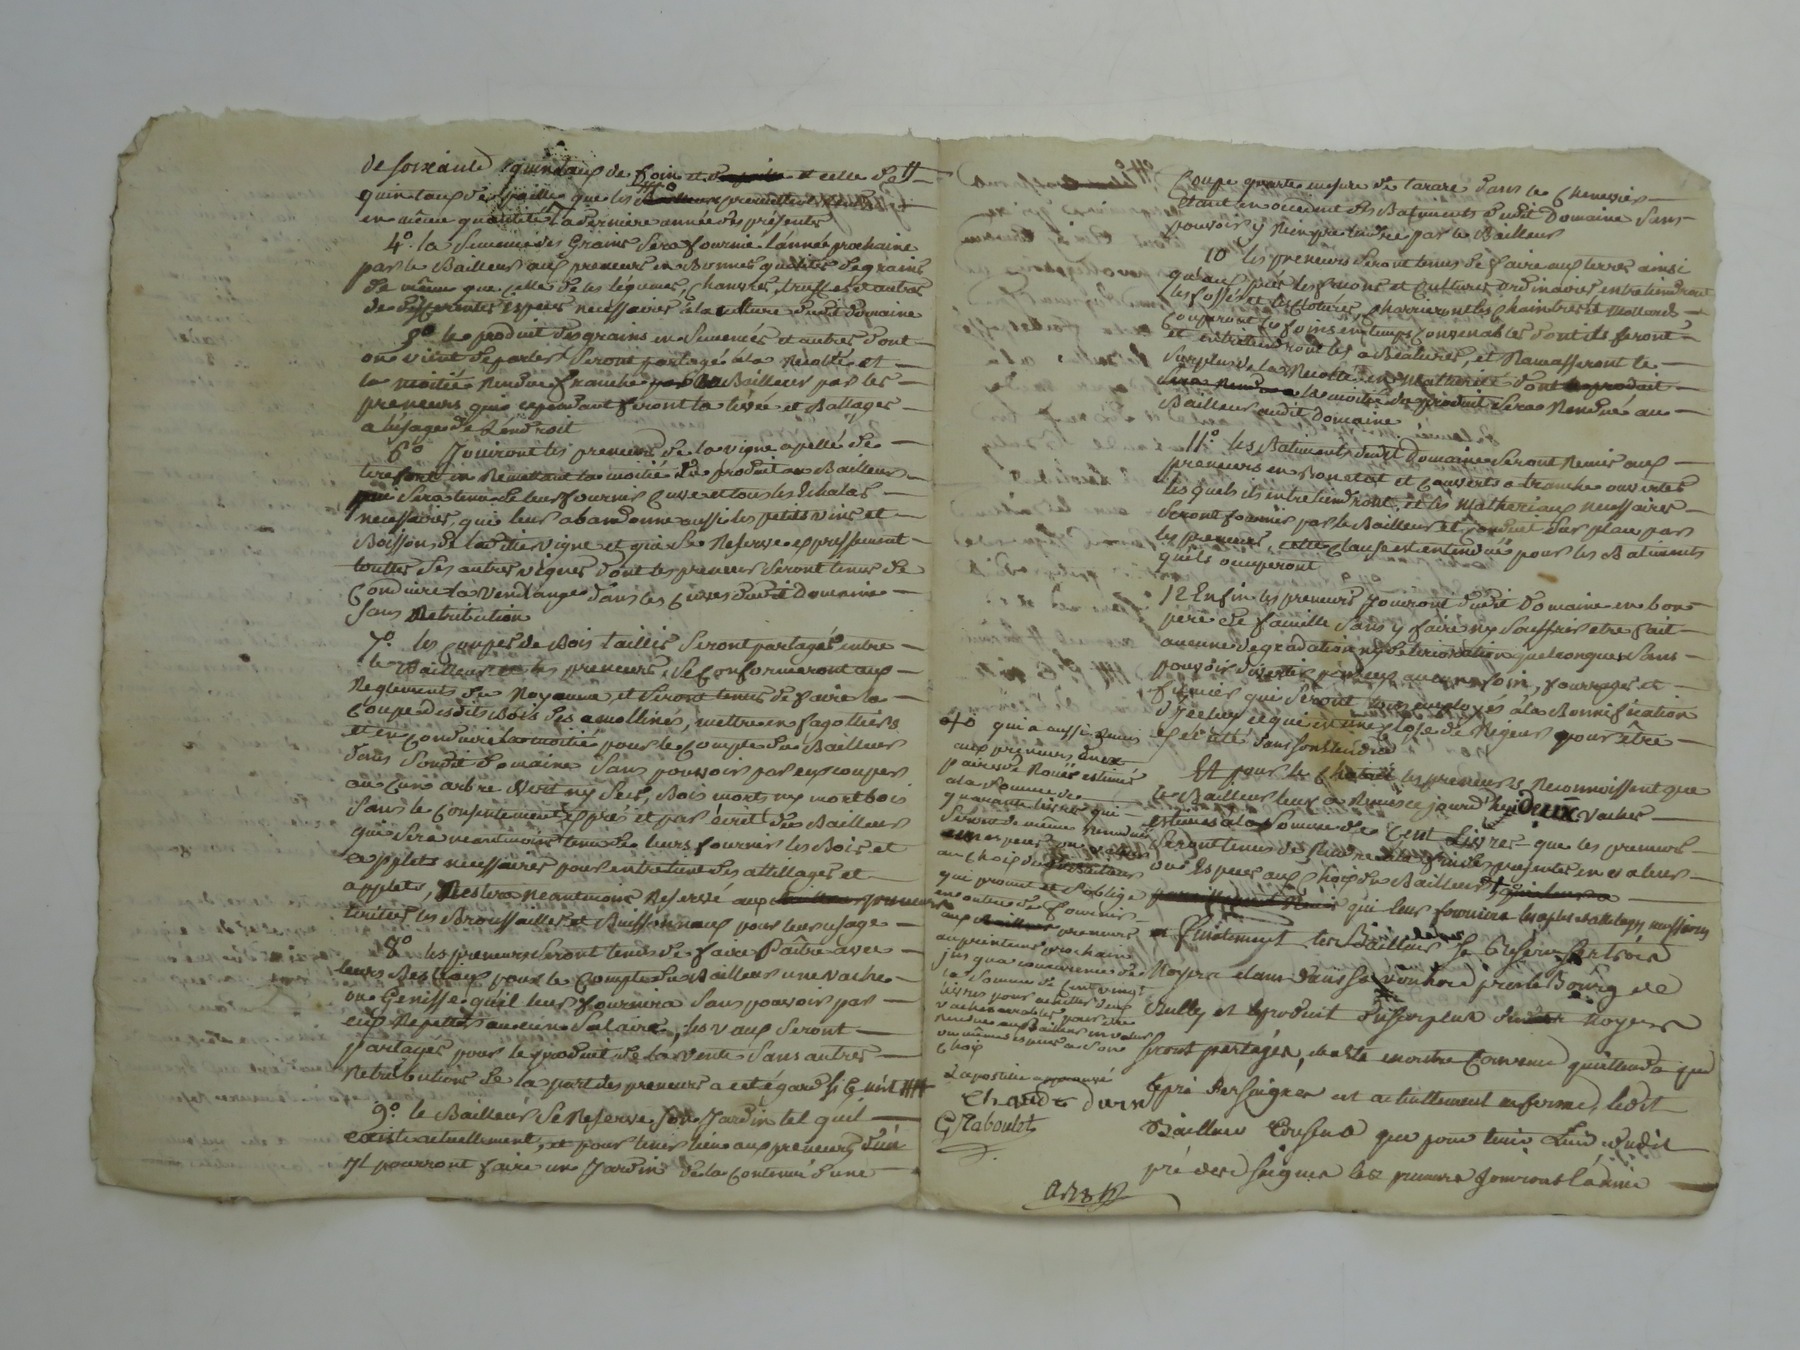 de soixante quintaux de foin et celle de
quintaux de paille que les preneurs
en même quantité la derniere année des présents
4°. la Semence des Grains sera fournie l'année prochaine
par le Bailleur aux preneurs en Bonnes qualités de grains
de même que celle de les legumes, Chanvres, truffes et autres
de differentes Espèces necessaires a la culture dudit domaine
5° le produit des grains en Semences et autres dont
on vient de parler seront partagé a la Recolte et
la moitié Rendue franche au Bailleur par les
preneurs qui cependant feront la levée et Battages
a l'usage de L'endroit
6° Jouiront les preneurs de la vigne apellé de
en Remettant la moitié du produit au Bailleur
qui Sera tenu de leur fournir Cuve et tous les Echalas
necessaires, qui leur abandonne aussi les petits vins et
Boisson de laditte vigne et qui se Reserve expressement
touttes ses autres vignes dont les preneurs seront tenus de
Conduire la vendange dans les Cuves dudit Domaine
Sans Retribution
7°. les coupes de Bois taillis Seront partagés entre
le Bailleur et les preneurs, se Conformeront aux
Reglements du Royaume et seront tenus de faire la
Coupe desdits Bois mettre en fagottiers
et en Conduire la moitié pour le Compte du Bailleur
dans Soudit Domaine Sans pouvoir par eux couper
aucun arbre vert ny Sec, Bois morts ny mort bois
Sans le Consentement Exprés et par écrit du Bailleur
qui Sera neantmoins tenu de leurs fournir les Bois et
applets necessaires pour entretenir les attellages et
applets, Restera neantmoins Reservé aux preneurs
toutes les Broussailles et Buissonnaux pour leur usage
8° les preneurs seront tenus de faire Paître avec
leurs Bestiaux pour le Compte du Bailleur une vache
ou Genisse qu'il leur fournira Sans pouvoir par
eux Repeter aucun Salaire, les vaux seront
partagés pour le produit de la vente Sans autres
Retributions de la part des preneurs a cet égard
9°. le Bailleur Se Reserve Son Jardin tel quil
existe actuellement, et pour tenir lieu aux preneurs d'un
Il pourront faire un Jardin de la Contenue d'une
Coupe quarte mesure de tarare dans le Chenevier
Etant en occident des Batiments dudit Domaine Sans
pouvoir y Rien pretendre par le Bailleur
10 les preneurs seront tenus de faire aux terres ainsi
qu'aux prés les façons et Cultures ordinaires entretiendront
les fossés et les Clotures, Charrieront les Chaintres et Mollards
Couperont les foins en temps Convenables dont ils feront
et entretiendront les abeatures, et Ramasseront le
Surplus de la Recolte en Maturité dont le produit
la moitié du produit sera Rendue au
Bailleur audit Domaine
11° les Batiments dudit Domaine Seront Remis aux
preneurs en Bon etat et Couverts a tranche ouvertes
les quels ils entretiendront, et les Matheriaux necessaires
seront fournis par le Bailleur et Conduit Sur place par
les preneurs, cette Clause est entendue pour les Batiments
qu'ils ocuperont
12 Enfin les preneurs Jouiront dudit Domaine en bon
père de famille Sans y faire ny Souffrir etre fait
aucune degradation ny deterioration quelconques Sans
pouvoir divertir par eux aucuns foin, fourrages et
fumier qui seront tous employés a la Bonnification
d'Icelluy ce qui est une Close de Rigeur pour être
Executé dans Son Etendüe
Et pour le Chatail les preneurs Reconnoissent que
le Bailleur leux a Remis ce jourd'huy deux vaches
estimés a la Somme de Cent Livres que les preneurs
Seront tenus de Rendre a la fin des presentes en valeur
ou Especes aux Choix du Bailleur
qui leur fournira les aplets et attelages necessaires
et finalement les Bailleur Se Reserve trois
Noyers etans dans sa près le Bourg de
Sully et le produit du Surplus desdits Noyers
Seront partagés, il a été en outre Convenu qu'attendu que
le pré des Saignes est actuellement en ferme, ledit
Bailleur Consent que pour tenir Lieu dudit
pré des Saignes les preneurs Jouiront l'année
qui a aussi Remis
aux preneurs deux
paires de Roues estimés
a la Somme de
quarante livres qui
Seront de même Rendues
au choix du
qui promet et S'oblige
en outre de fournir
aux preneurs
au printems prochain
jusqu'a concurrence de
la Somme de Cent vingt
livres pour acheter deux
vaches pour etre
Rendue aux Bailleur en valeur
ou mêmes especes a Son
Choix
L'apostille approuvé
G Raboulot